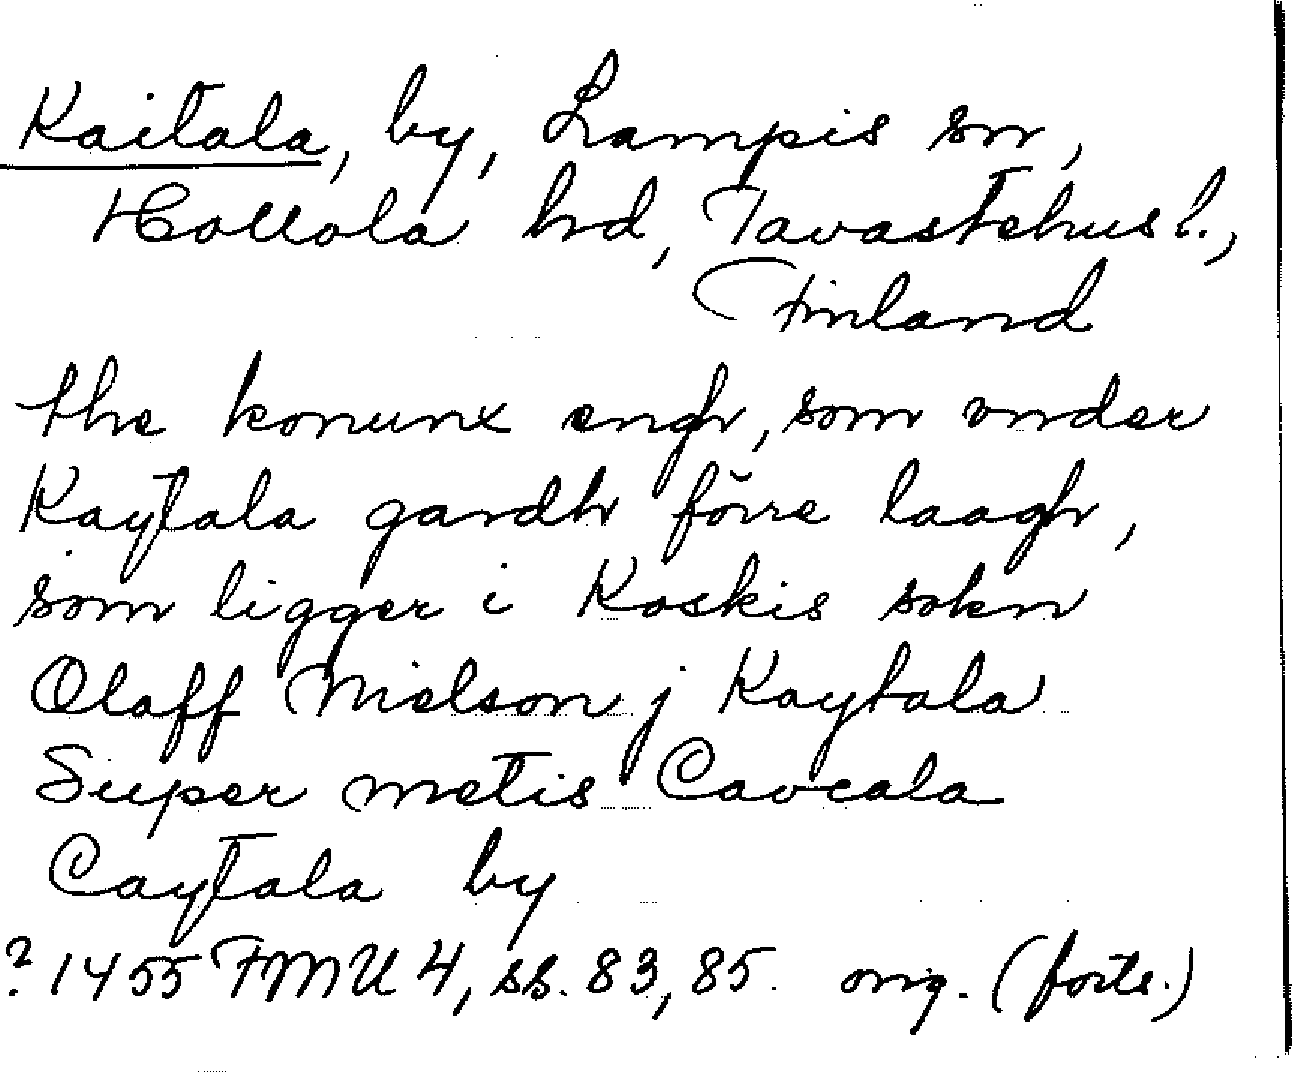 Kaitala, by, Lampis sn,
Hollola hd, Tavastehus l.,
Finland
the konunx engh, som vnder
Kaytala gardh förre laagh,
som ligger i Koskis sokn
Olaff Nielson j Kaytala
Super metis Cavcala
Caytala by
? 1455 FMU 4, ss. 83, 85. orig. (forts.)